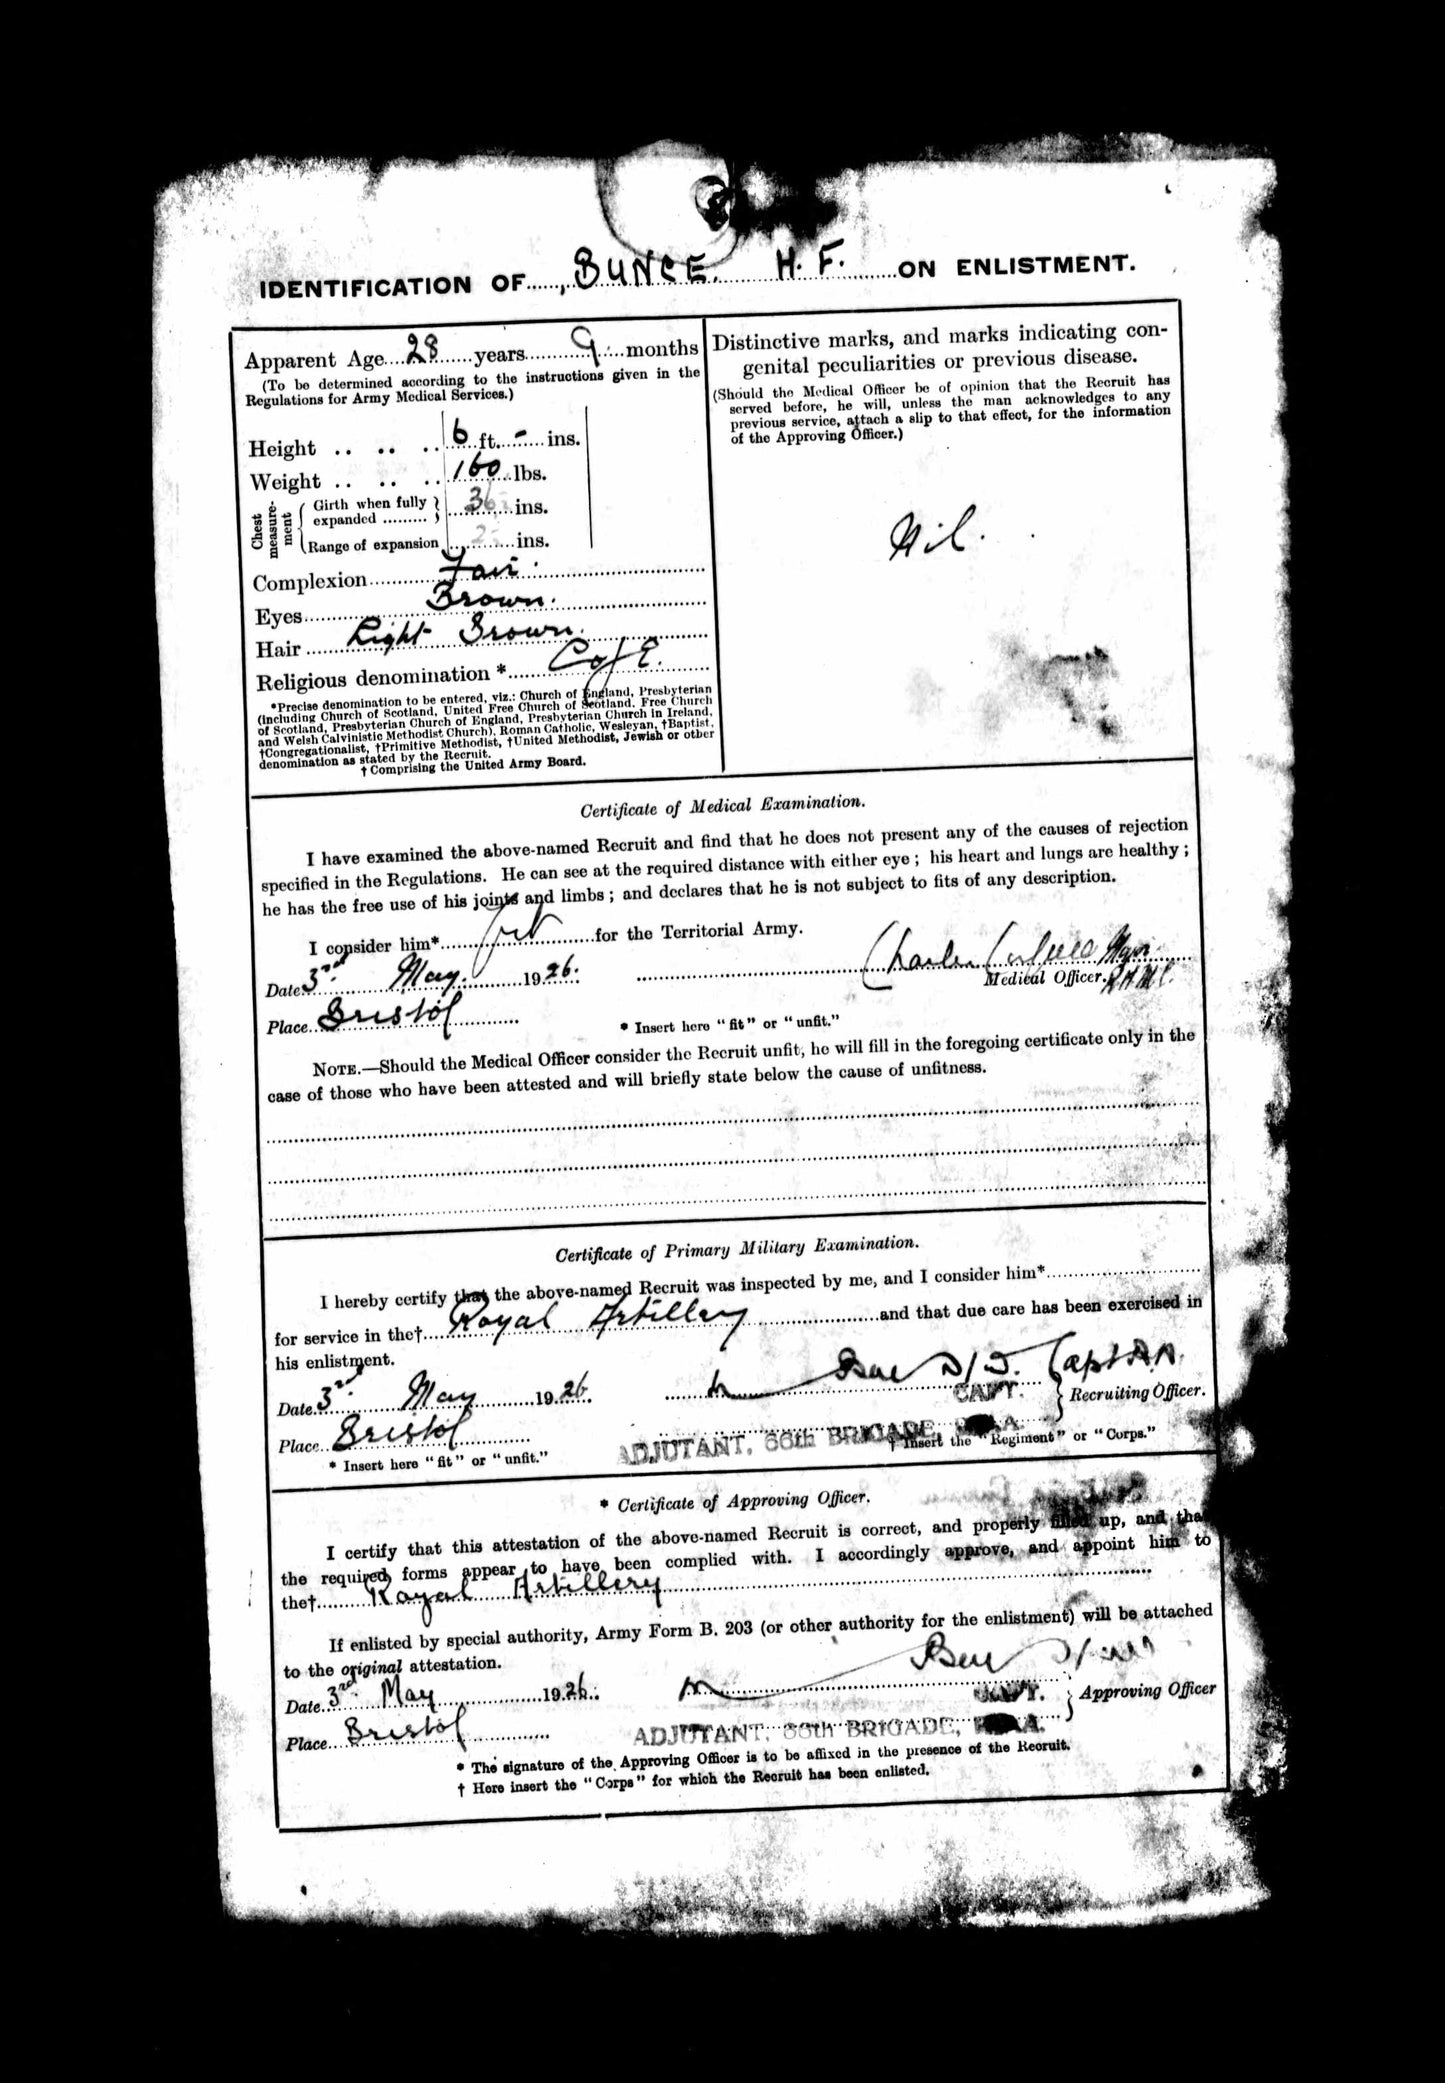 IDENTIFICATION OF BUNCE. H. F. ON ENLISTMENT.
Apparent Age 28 years 9 months
(To be determined according to the instructions given in the
Regulations for Army Medical Services.)
Height .. .. .. 6 ft. - ins.
Weight .. .. .. 160 lbs.
Chest measurement
Girth when fully expanded ......... 36 ins.
Range of expansion 2 ins.
Complexion Fair.
Eyes Brown.
Hair Light Brown.
Religious denomination * C of E.
*Precise denomination to be entered, viz.: Church of England, Presbyterian
(including Church of Scotland, United Free Church of Scotland, Free Church
of Scotland, Presbyterian Church of England, Presbyterian Church in Ireland,
and Welsh Calvinistic Methodist Church), Roman Catholic, Wesleyan, †Baptist,
†Congregationalist, †Primitive Methodist, †United Methodist, Jewish or other
denomination as stated by the Recruit.
† Comprising the United Army Board.
Distinctive marks, and marks indicating con-
genital peculiarities or previous disease.
(Should the Medical Officer be of opinion that the Recruit has
served before, he will, unless the man acknowledges to any
previous service, attach a slip to that effect, for the information
of the Approving Officer.)
Nil.
Certificate of Medical Examination.
I have examined the above-named Recruit and find that he does not present any of the causes of rejection
specified in the Regulations. He can see at the required distance with either eye ; his heart and lungs are healthy ;
he has the free use of his joints and limbs ; and declares that he is not subject to fits of any description.
I consider him* fit for the Territorial Army.
Date 3rd. May. 1926. Charles
Medical Officer. R.A.M.C.
Place Bristol * Insert here "fit" or "unfit."
NOTE.—Should the Medical Officer consider the Recruit unfit, he will fill in the foregoing certificate only in the
case of those who have been attested and will briefly state below the cause of unfitness.
Certificate of Primary Military Examination.
I hereby certify that the above-named Recruit was inspected by me, and I consider him*
for service in the† Royal Artillery and that due care has been exercised in
his enlistment.
Date 3rd. May 1926. Capt R.A.
CAPT. } Recruiting Officer.
Place Bristol ADJUTANT, 66th BRIGADE,
* Insert here "fit" or "unfit." † Insert the "Regiment" or "Corps."
* Certificate of Approving Officer.
I certify that this attestation of the above-named Recruit is correct, and properly filled up, and that
the required forms appear to have been complied with. I accordingly approve, and appoint him to
the† Royal Artillery
If enlisted by special authority, Army Form B. 203 (or other authority for the enlistment) will be attached
to the original attestation.
Date 3rd. May 1926.
CAPT. } Approving Officer
Place Bristol ADJUTANT, 66th BRIGADE,
* The signature of the Approving Officer is to be affixed in the presence of the Recruit.
† Here insert the "Corps" for which the Recruit has been enlisted.